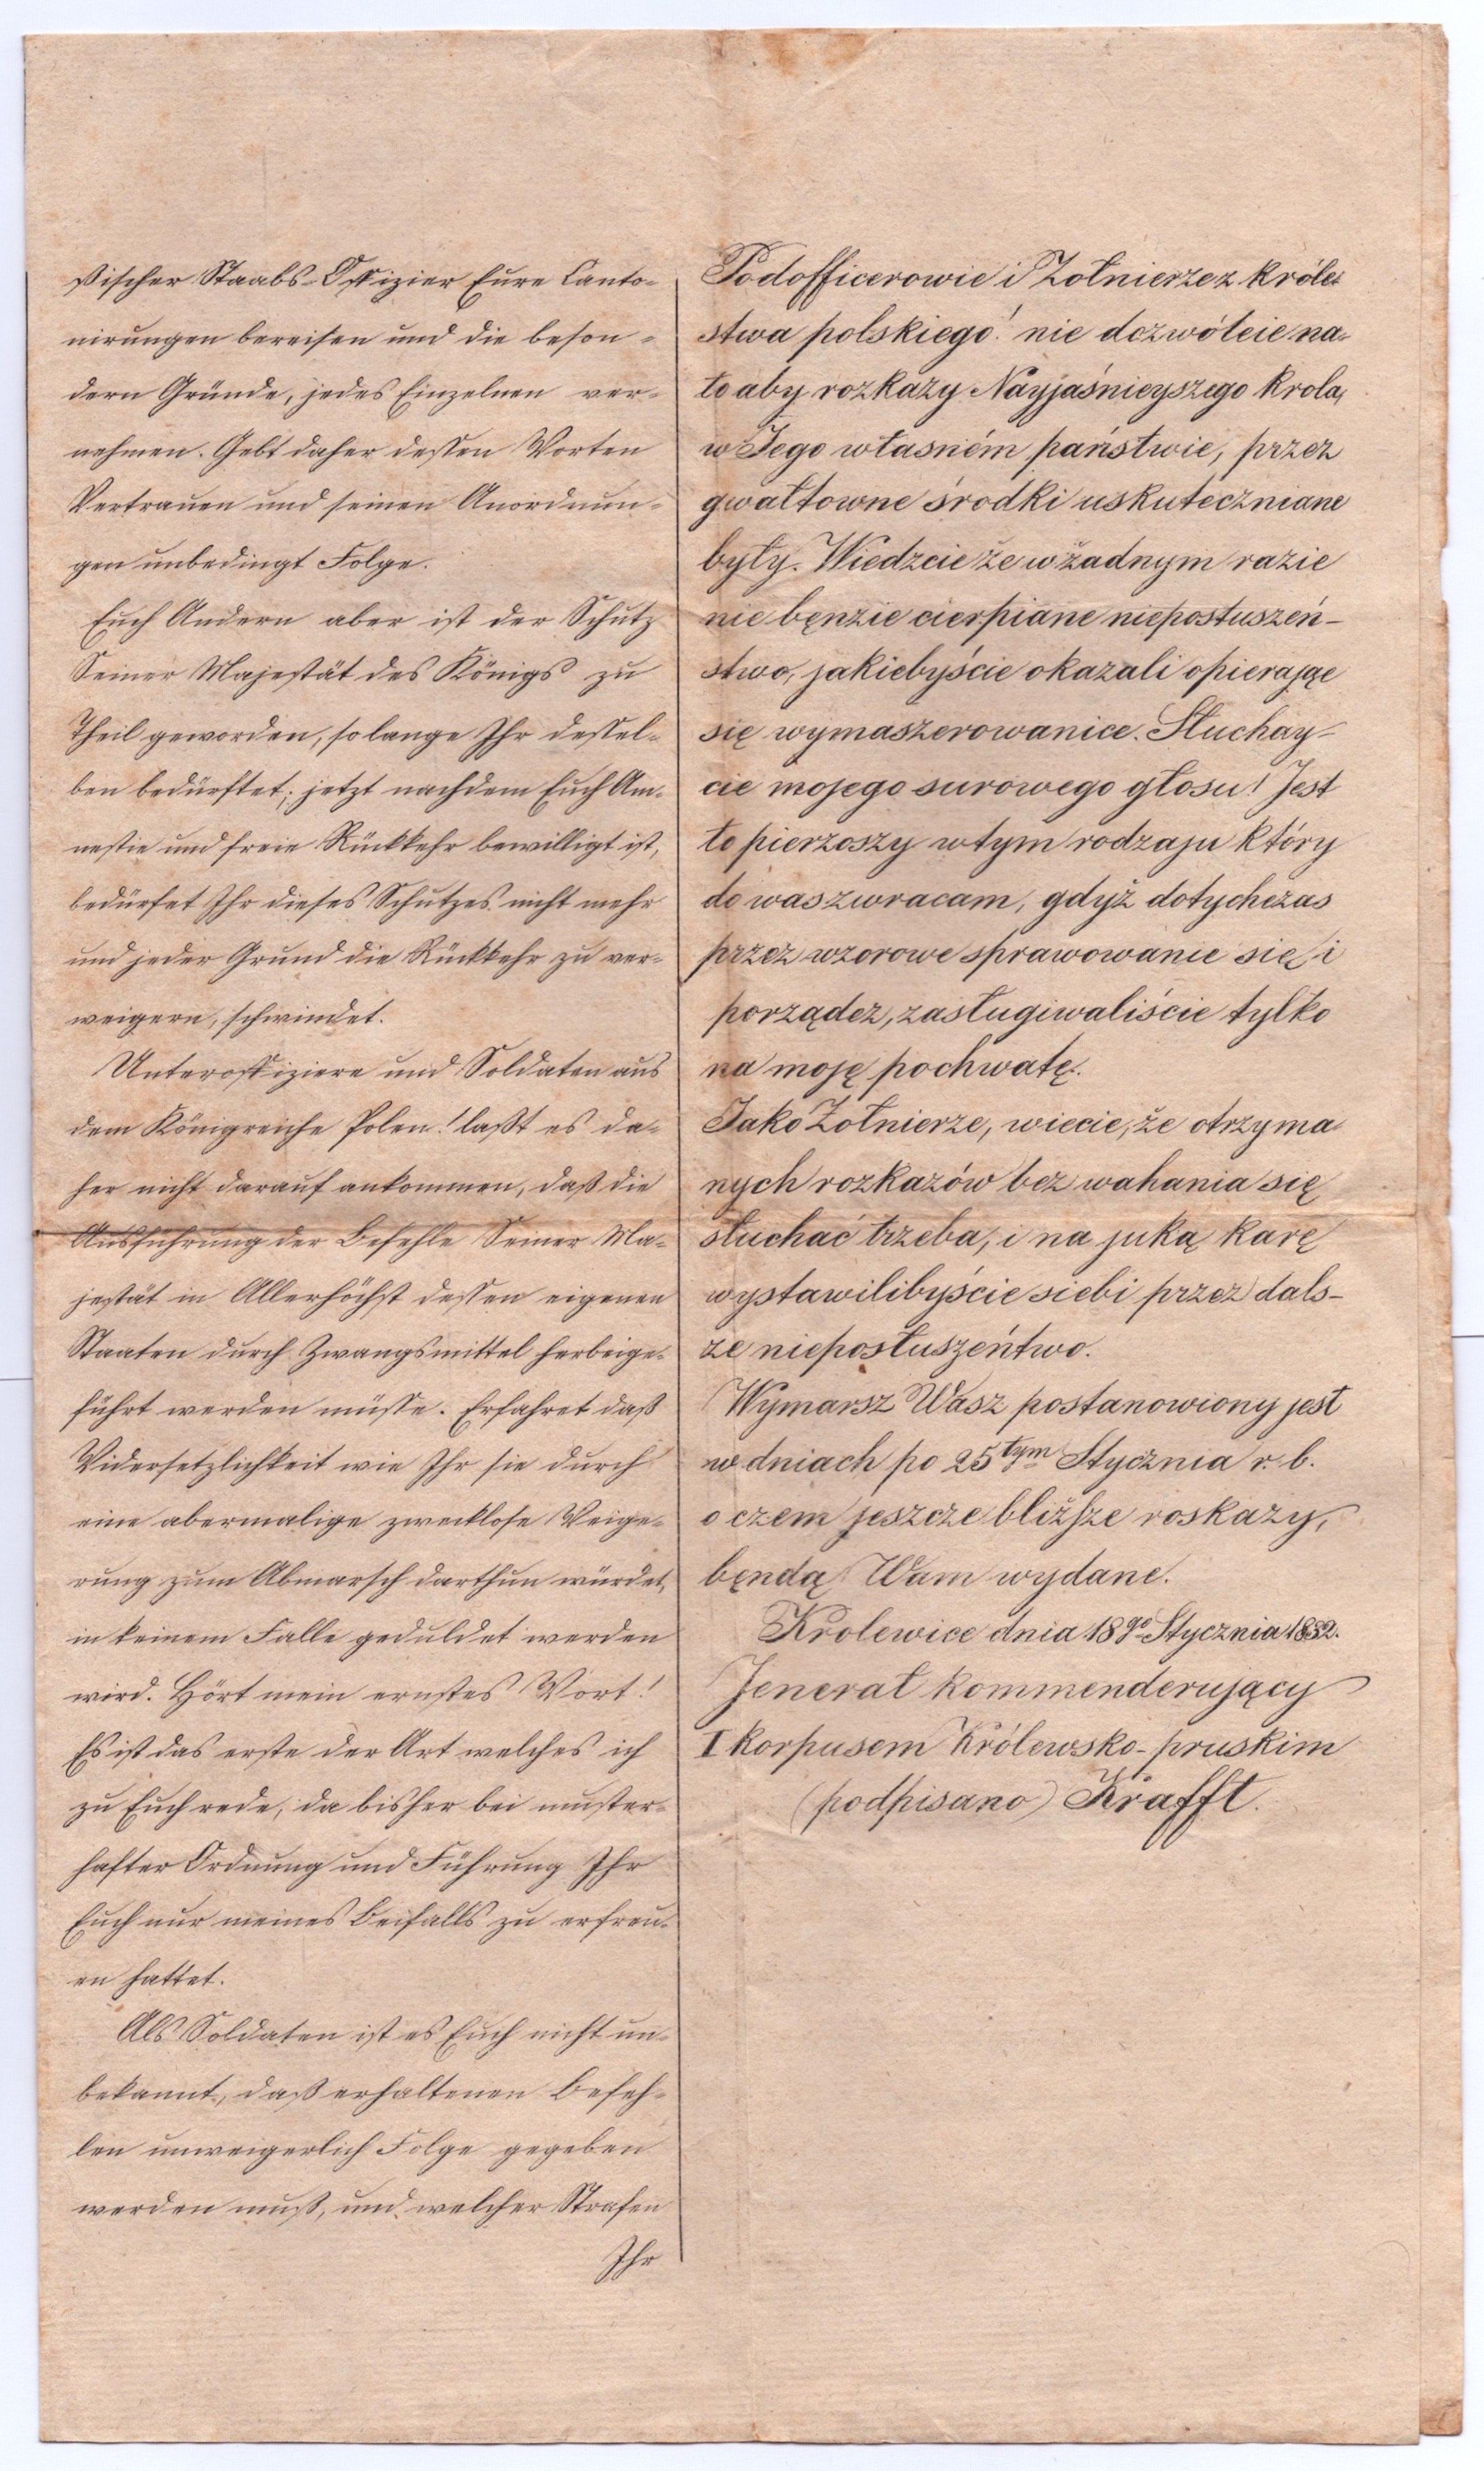 ßischer Staabs-Offizier Eure Canto-
nirungen bereisen und die beson-
dern Gründe, jedes Einzelnen ver-
nehmen. Gebt daher dessen Worten
Vertrauen und seinen Anordnun-
gen unbedingt Folge.
Euch Andern aber ist der Schutz
Seiner Majestät des Königs zu
Theil geworden, so lange Ihr dessel-
ben bedürftet; jetzt nachdem Euch Am-
nestie und freie Rückkehr bewilligt ist,
bedürfet Ihr dieses Schutzes nicht mehr
und jeder Grund die Rückkehr zu ver-
weigern, schwindet.
Unteroffiziere und Soldaten aus
dem Königreiche Polen! laßt es da-
her nicht darauf ankommen, daß die
Ausführung der Befehle Seiner Ma-
jestät in Allerhöchst dessen eigenen
Staaten durch Zwangsmittel herbeige-
führt werden müsse. Erfahret daß
Widersetzlichkeit wie Ihr sie durch
eine abermalige zwecklose Weige-
rung zum Abmarsch darthun würdet,
in keinem Falle geduldet werden
wird. Hört mein ernstes Wort!
Es ist das erste der Art welches ich
zu Euch rede, da bisher bei muster-
hafter Ordnung und Führung Ihr
Euch nur meines Beifalls zu erfreu-
en hattet.
Als Soldaten ist es Euch nicht un-
bekannt, daß erhaltenen Befeh-
len unweigerlich Folge gegeben
werden muß, und welcher Strafen
Ihr
Podofficerowie i Zołnierze z króle-
stwa polskiego! nie dozwólcie na-
to aby rozkazy Nayjaśnieyszego Krola,
w Jego własném państwie, przez
gwałtowne środki uskuteczniane
były. Wiedzcie że w żadnym razie
nie bęnzie cierpiane nieposłuszeń-
stwo, jakiebyście okazali opierając
się wymaszerowanice. Słuchay-
cie mojego surowego głosu! Jest
to pierzoszy w tym rodzaju który
do was zwracam, gdyż dotychczas
przez wzorowe sprawowanie się i
porządez, zasługiwaliście tylko
na moję pochwałę.
Jako Zołnierze, wiecie, że otrzyma-
nych rozkazów bez wahania się
słuchać trzeba, i na juką karę
wystawilibyście siebi przez dals-
ze nieposłuszeńtwo.
Wymarsz Wasz postanowiony jest
w dniach po 25tym Stycznia r. b.
o czem jeszcze bliższe roskazy,
bęndą Wam wydane.
Krolewice dnia 18go Stycznia 1832.
Jenerał kommenderujący
I korpusem Królewsko-pruskim
(podpisano) Krafft.